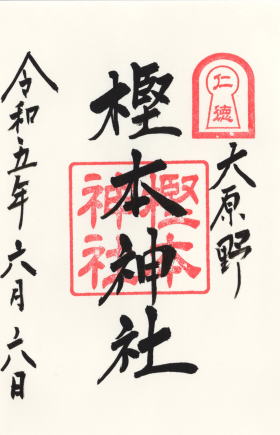 仁徳
大原野
樫本神社
樫本神社
令和五年六月六日